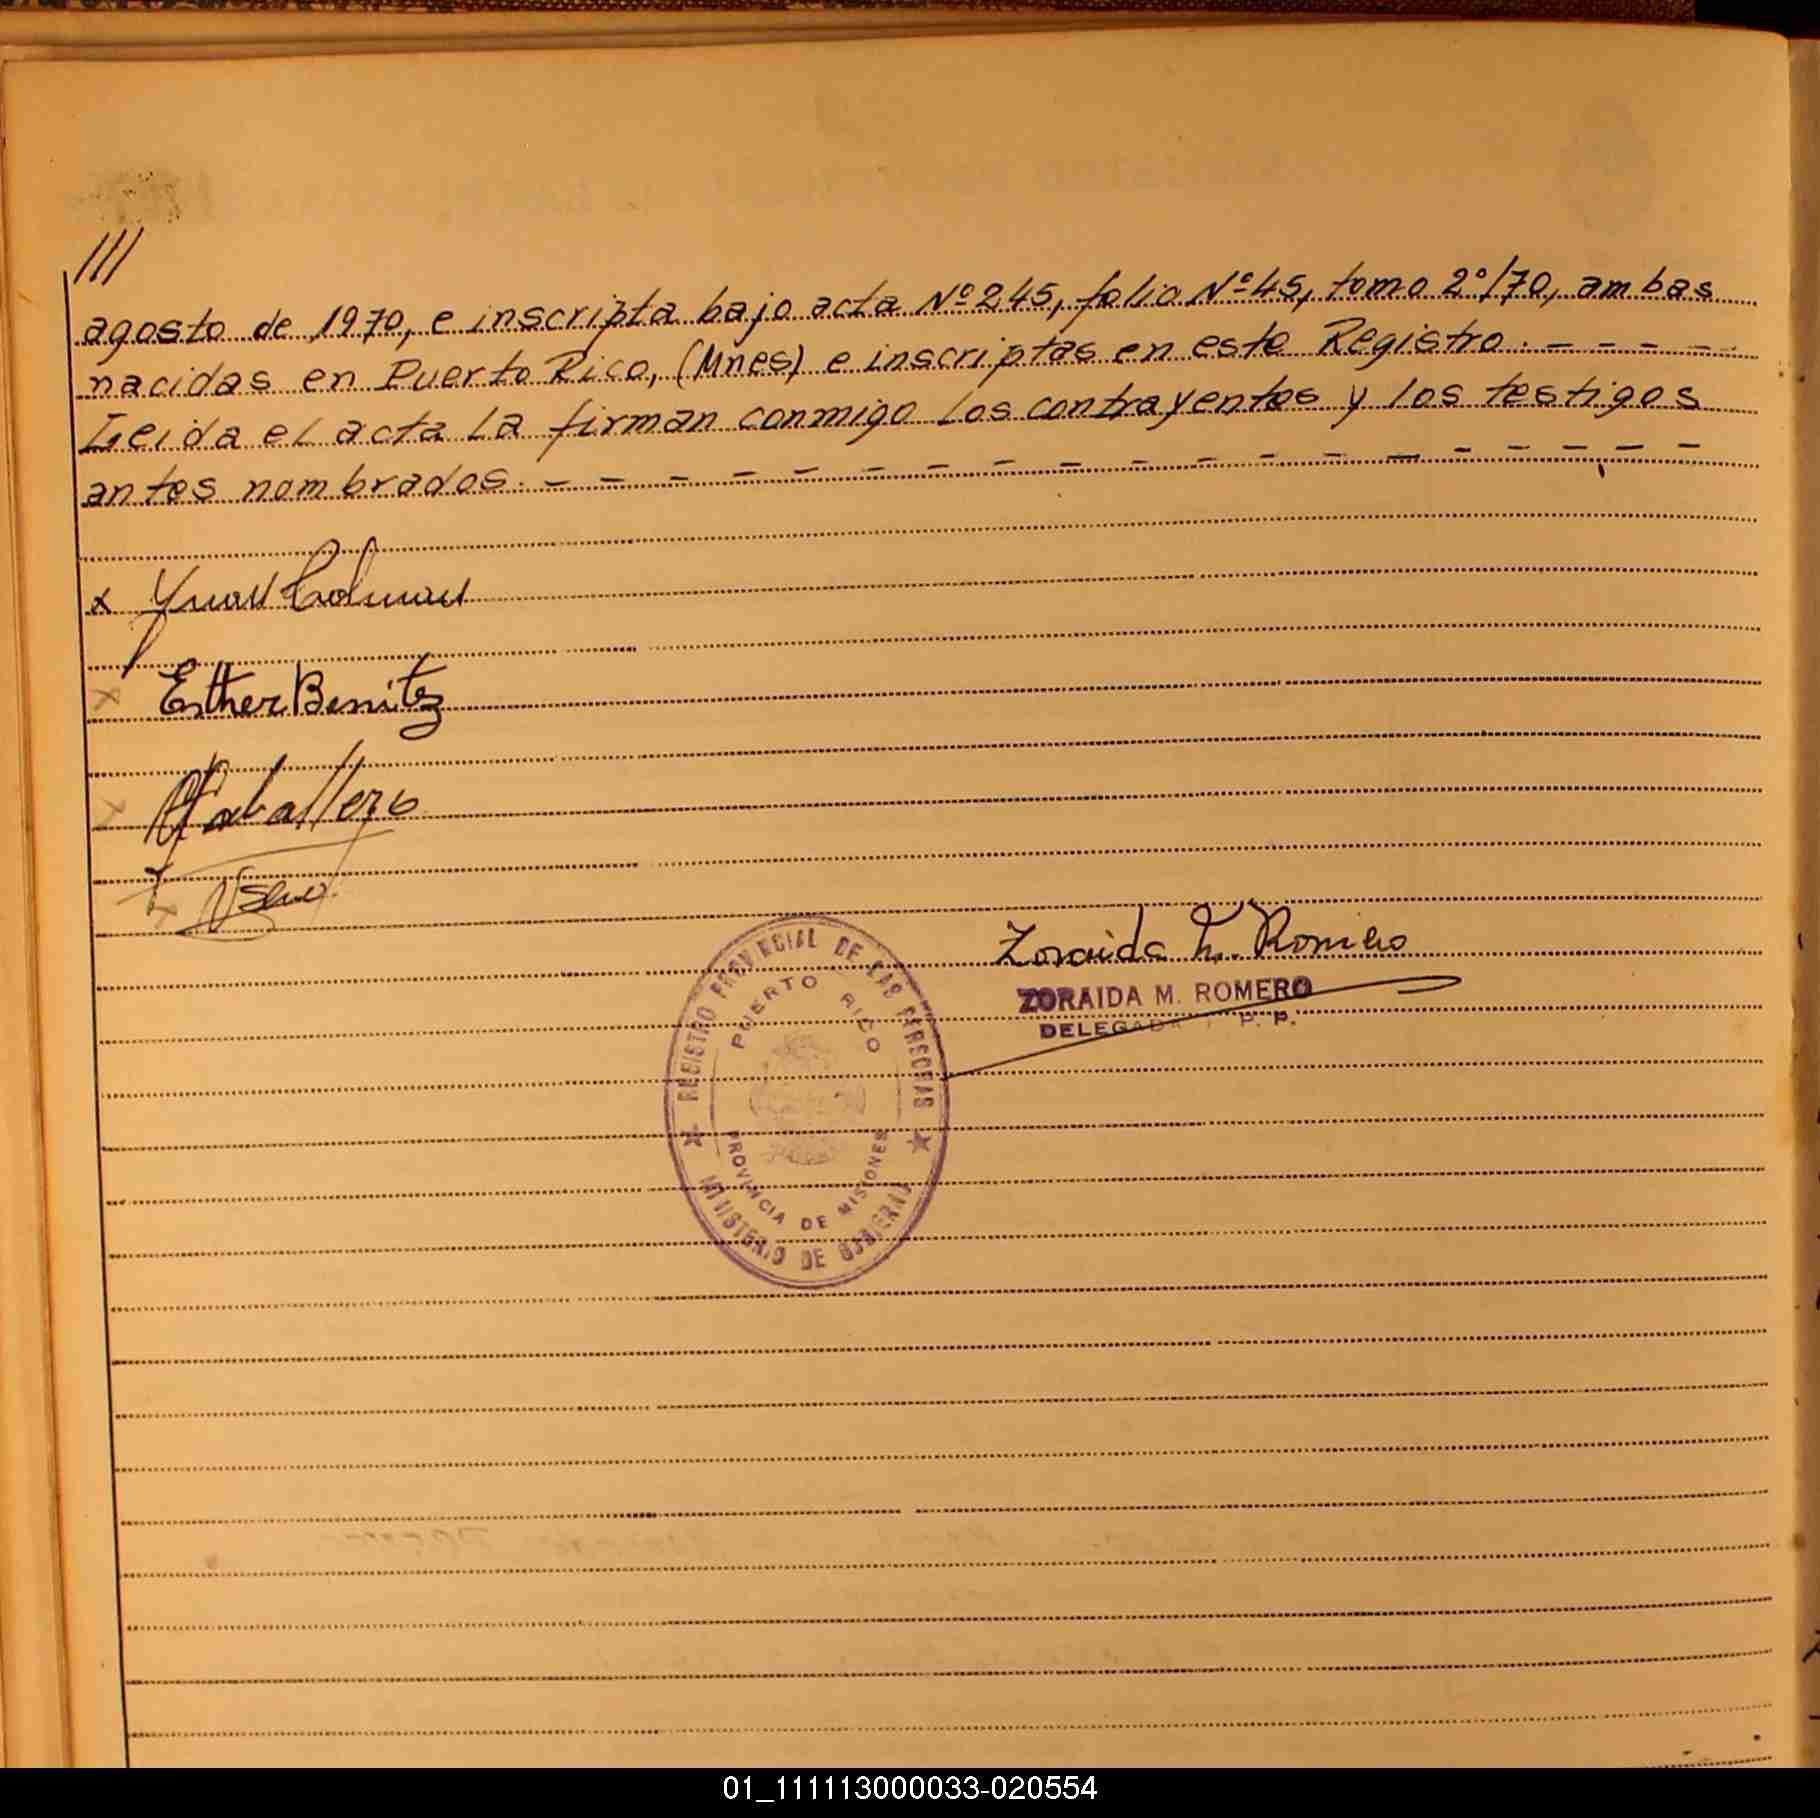 ///
agosto de 1970, e inscripta bajo acta Nº 245, folio Nº 45, tomo 2º/70, ambas
nacidas en Puerto Rico, (Mnes) e inscriptas en este Registro. - - - -
Leida el acta la firman conmigo los contrayentes y los testigos
antes nombrados. - - - - - - - - - - - - - - - - - -
x Juan Colman
x Esther Benitez
x Caballero
Zoraida M. Romero
ZORAIDA M. ROMERO
DELEGADA P. P.
REGISTRO PROVINCIAL DE LAS PERSONAS
PUERTO RICO
PROVINCIA DE MISIONES
MINISTERIO DE GOBIERNO
01_111113000033-020554